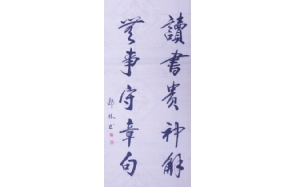 讀書贵神解
无事守章句